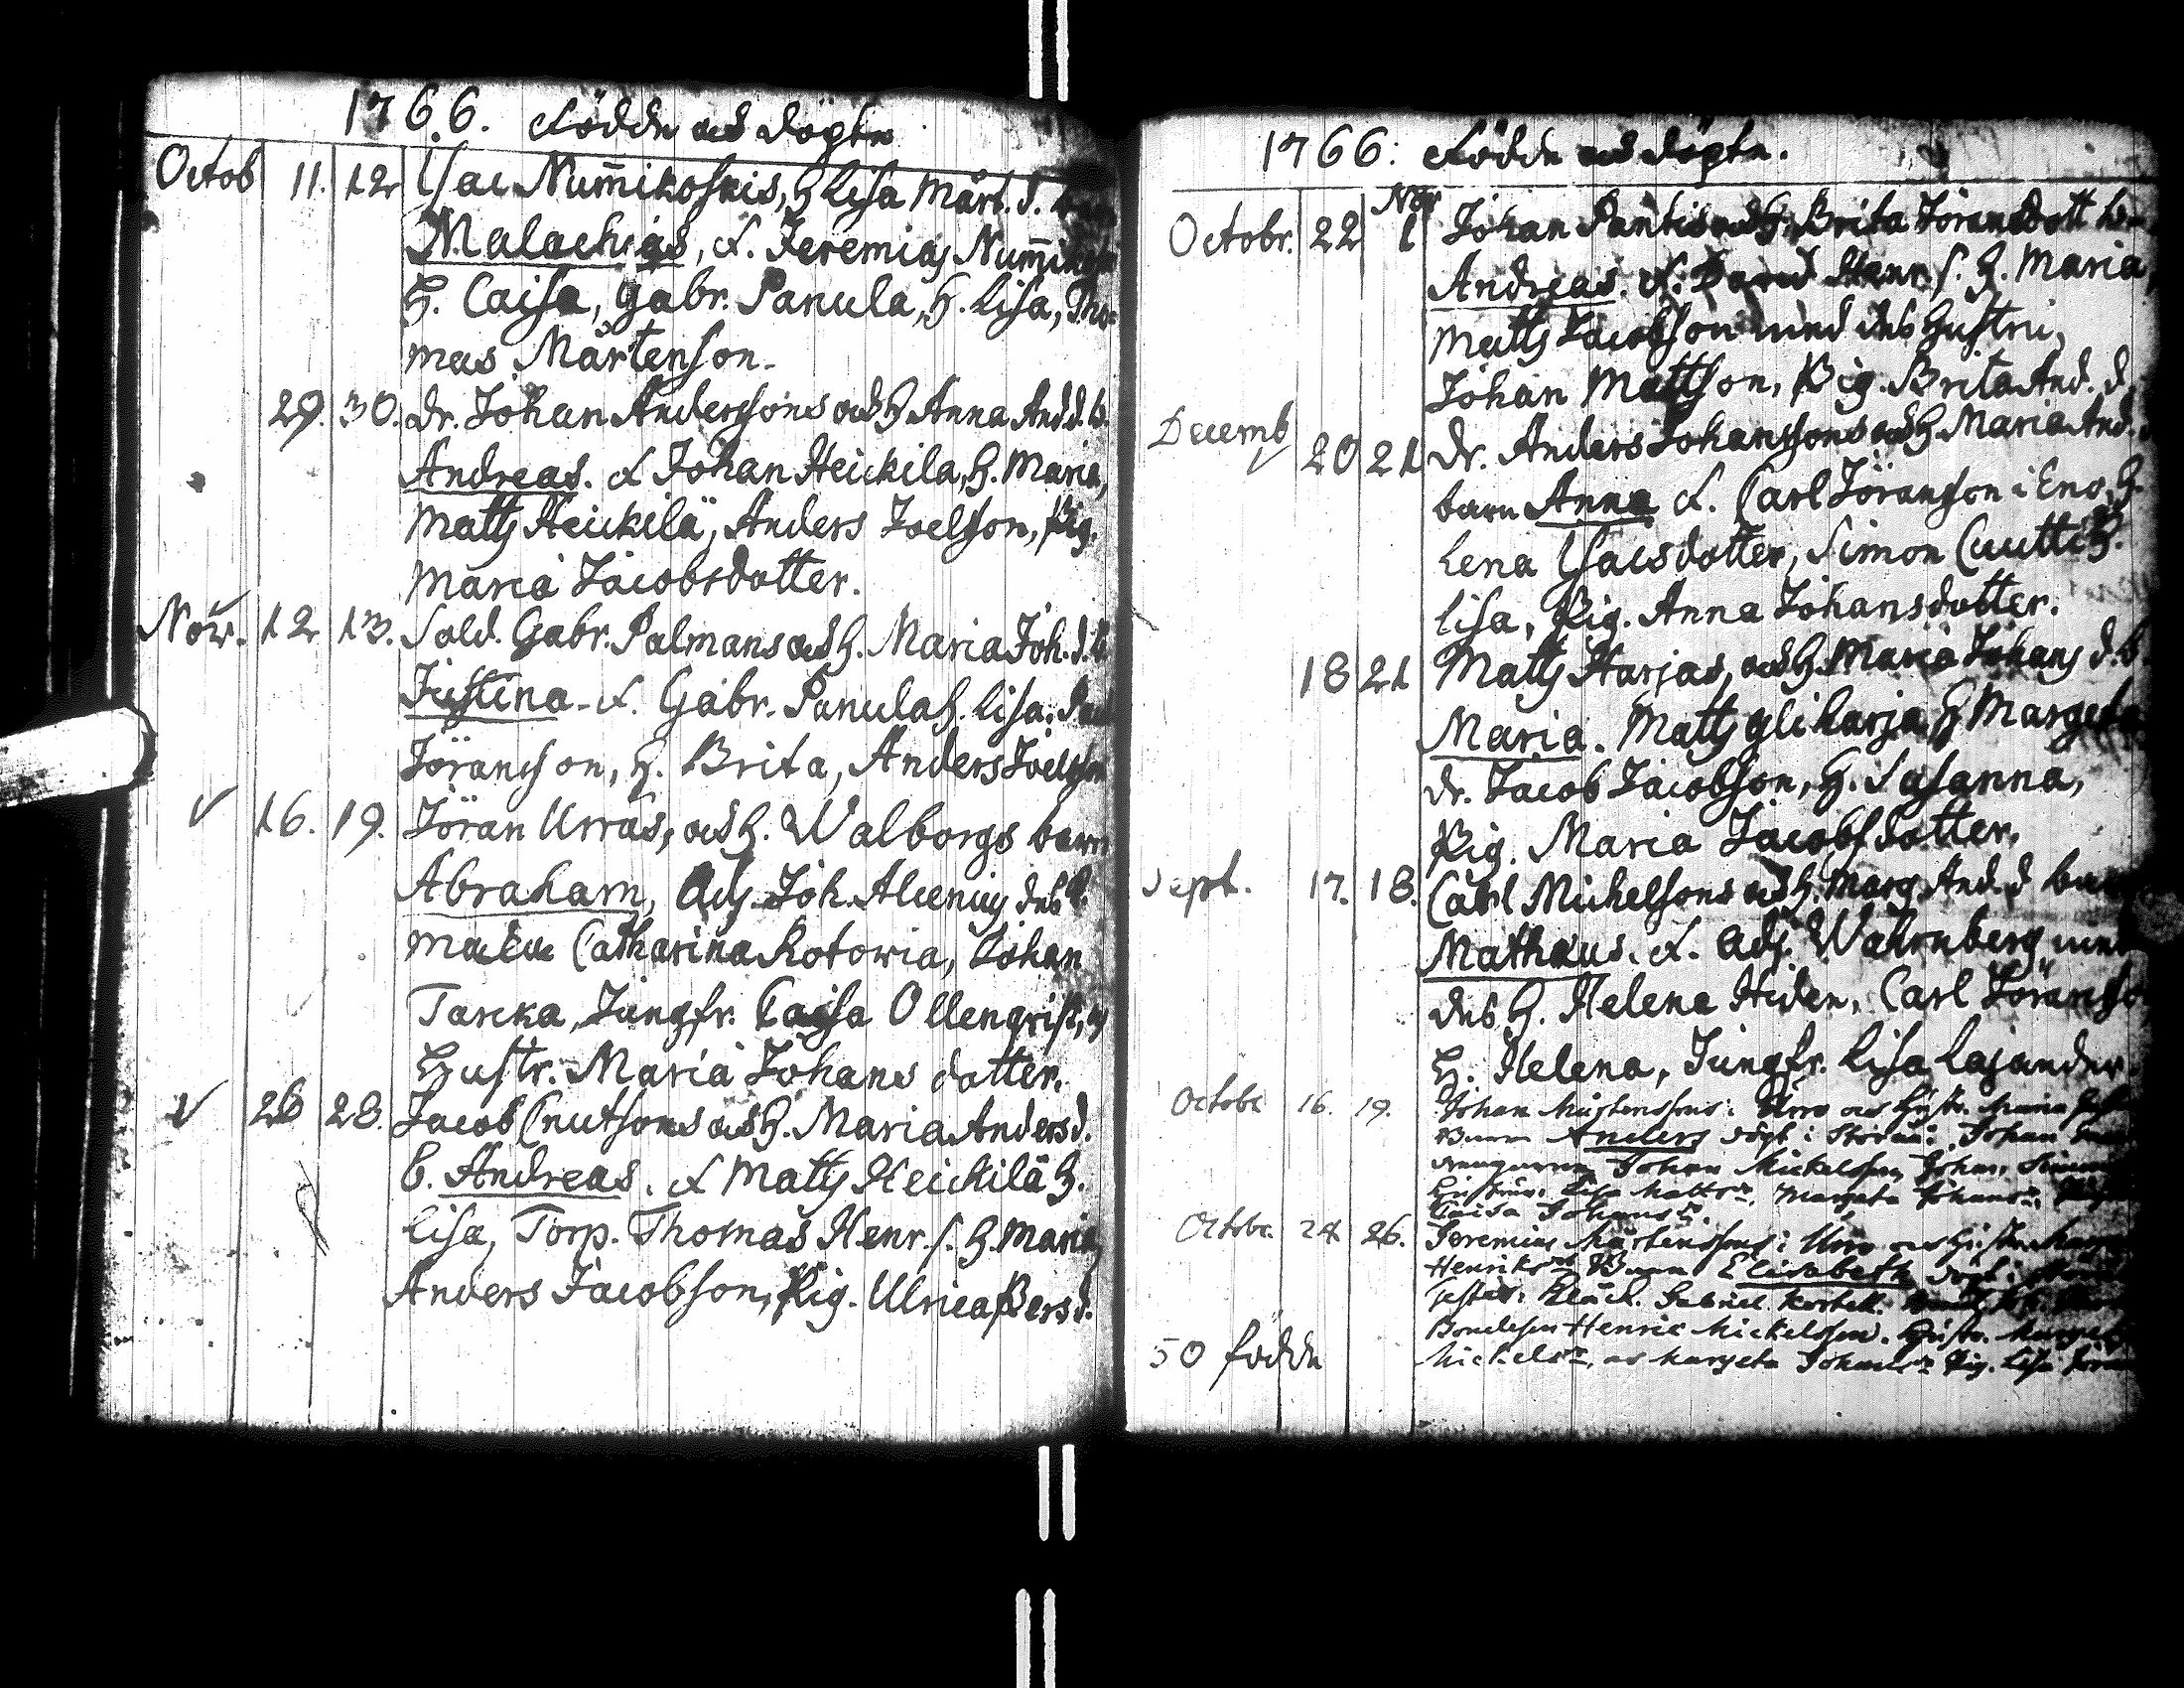 1766. Födde och döpte
Octob 11. 12 Isac Nummikoskis, H Lisa Märt. d.
Malachias, f. Jeremias Nummikoski
H. Caisa, Gabr. Panula, H. Lisa, Tho-
mas Mårtenson.
29. 30. dr. Johan Anderssons och H Anna And. d. b.
Andreas. f Johan Heickila, H. Maria,
Matts Heickilä, Anders Joelsson, Pig.
Maria Jacobsdotter.
Nov. 12 13. Sold. Gabr. Palmans och H. Maria Joh. d. b.
Justina. f. Gabr. Panula H. Lisa,
Jöransson, H. Brita, Anders Joelsson
16. 19. Jöran Urras, och H. Walborgs barn
Abraham, Adj. Joh. Alcenius dess
maka Catharina Rotovia, Johan
Tarcka, Jungfr. Caisa Ollenqvist,
Hustr. Maria Johans dotter.
26 28. Jacob Cnutsons och H. Maria Anders d.
b. Andreas. f Matts Heickilä H.
Lisa, Torp. Thomas Henr. s. H. Maria,
Anders Jacobson, Pig. Ulrica Pers d.
1766: Födde och döpte.
Octobr. 22 Nov 1 Johan Pantis och H. Brita Joransdott
Andreas. f. David Henr. s. H. Maria,
Matts Jacobsson med dess Hustru,
Johan Mattsson, Pig. Brita And. d.
Decemb 20 21 dr. Anders Johanssons och H Maria And.
barn Anna f. Carl Jöransson i Eno, H.
Lena Isacsdotter, Simon Cuutti H.
Lisa, Pig. Anna Johansdotter.
18 21 Matts Harjas, och H. Maria Johans d. b.
Maria. Matts Yliharja, H Margeta
dr. Jacob Jacobson, H. Susanna,
Pig. Maria Jacobsdotter.
Sept. 17. 18. Carl Michelsons och H. Marg. And. d barn
Mathæus. f. Adj. Wahrnberg med
dess H. Helena Hiden, Carl Jöransson
H. Helena, Jungfr. Lisa Lajander.
Octobr 16. 19. Johan Mårtenssons i Urro och Hustr. Maria
Barn Anders döpt i Storå: Johan
Johan Mickelsson, Johan
Lisa Matts dr, Margeta Johans dr,
Caisa Johans dr.
Octobr. 24 26. Jeremias Mårtenssons i Urro och Hustr.
Henriks dr Barn Elisabeth döpt i
Gabriel
Bondesson Henric Mickelsson. Hustr. Margeta
Mickels dr, och Margeta Johans dr Pig. Lisa
50 födde